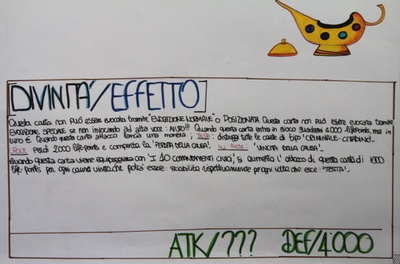 [DIVINITÀ/EFFETTO]
Questa carta non può essere evocata tramite "EVOCAZIONE NORMALE" o POSIZIONATA. Questa carta non può essere evocata tramite
EVOCAZIONE SPECIALE se non invocando ad alta voce: AIUTO!!! Quando questa carta entra in gioco guadagni 4.000 life points, ma in
euro €. Quando questa carta attacca lancia una moneta; TESTA: distruggi tutte le carte di tipo "CRIMINALE-CARDINO".
CROCE: perdi 2000 life points e comporta la "PERDITA DELLA CAUSA". "VINCITA DELLA CAUSA".
Quando questa carta viene equipaggiata con "I 10 COMANDAMENTI CIVICI", si aumenta l'attacco di questa carta di 1000
life points per ogni causa vinta, che potrà essere stabilita rispettivamente per ogni volta che esce "TESTA".
ATK/??? DEF/4000